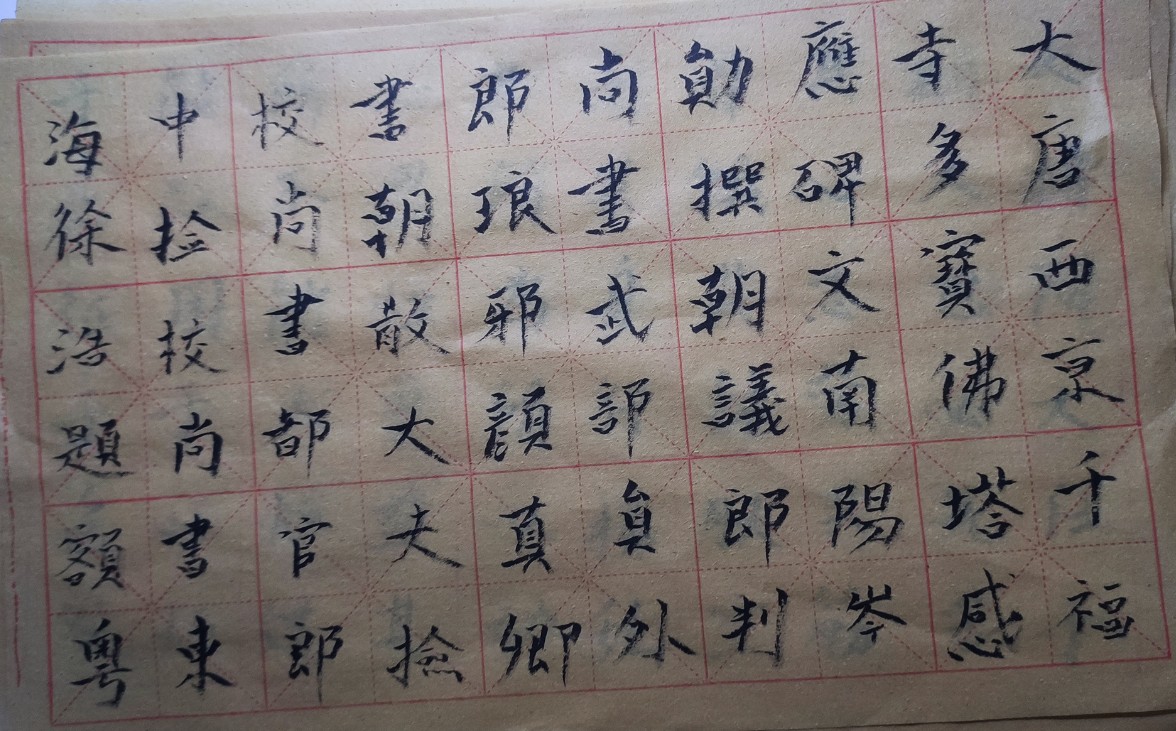 大唐西京千福
寺多寶佛塔感
應碑文南陽岑
勛撰朝議郎判
尚書武部員外
郎琅邪顏真卿
書朝散大夫撿
校尚書都官郎
中捡校尚書東
海徐浩題額粤